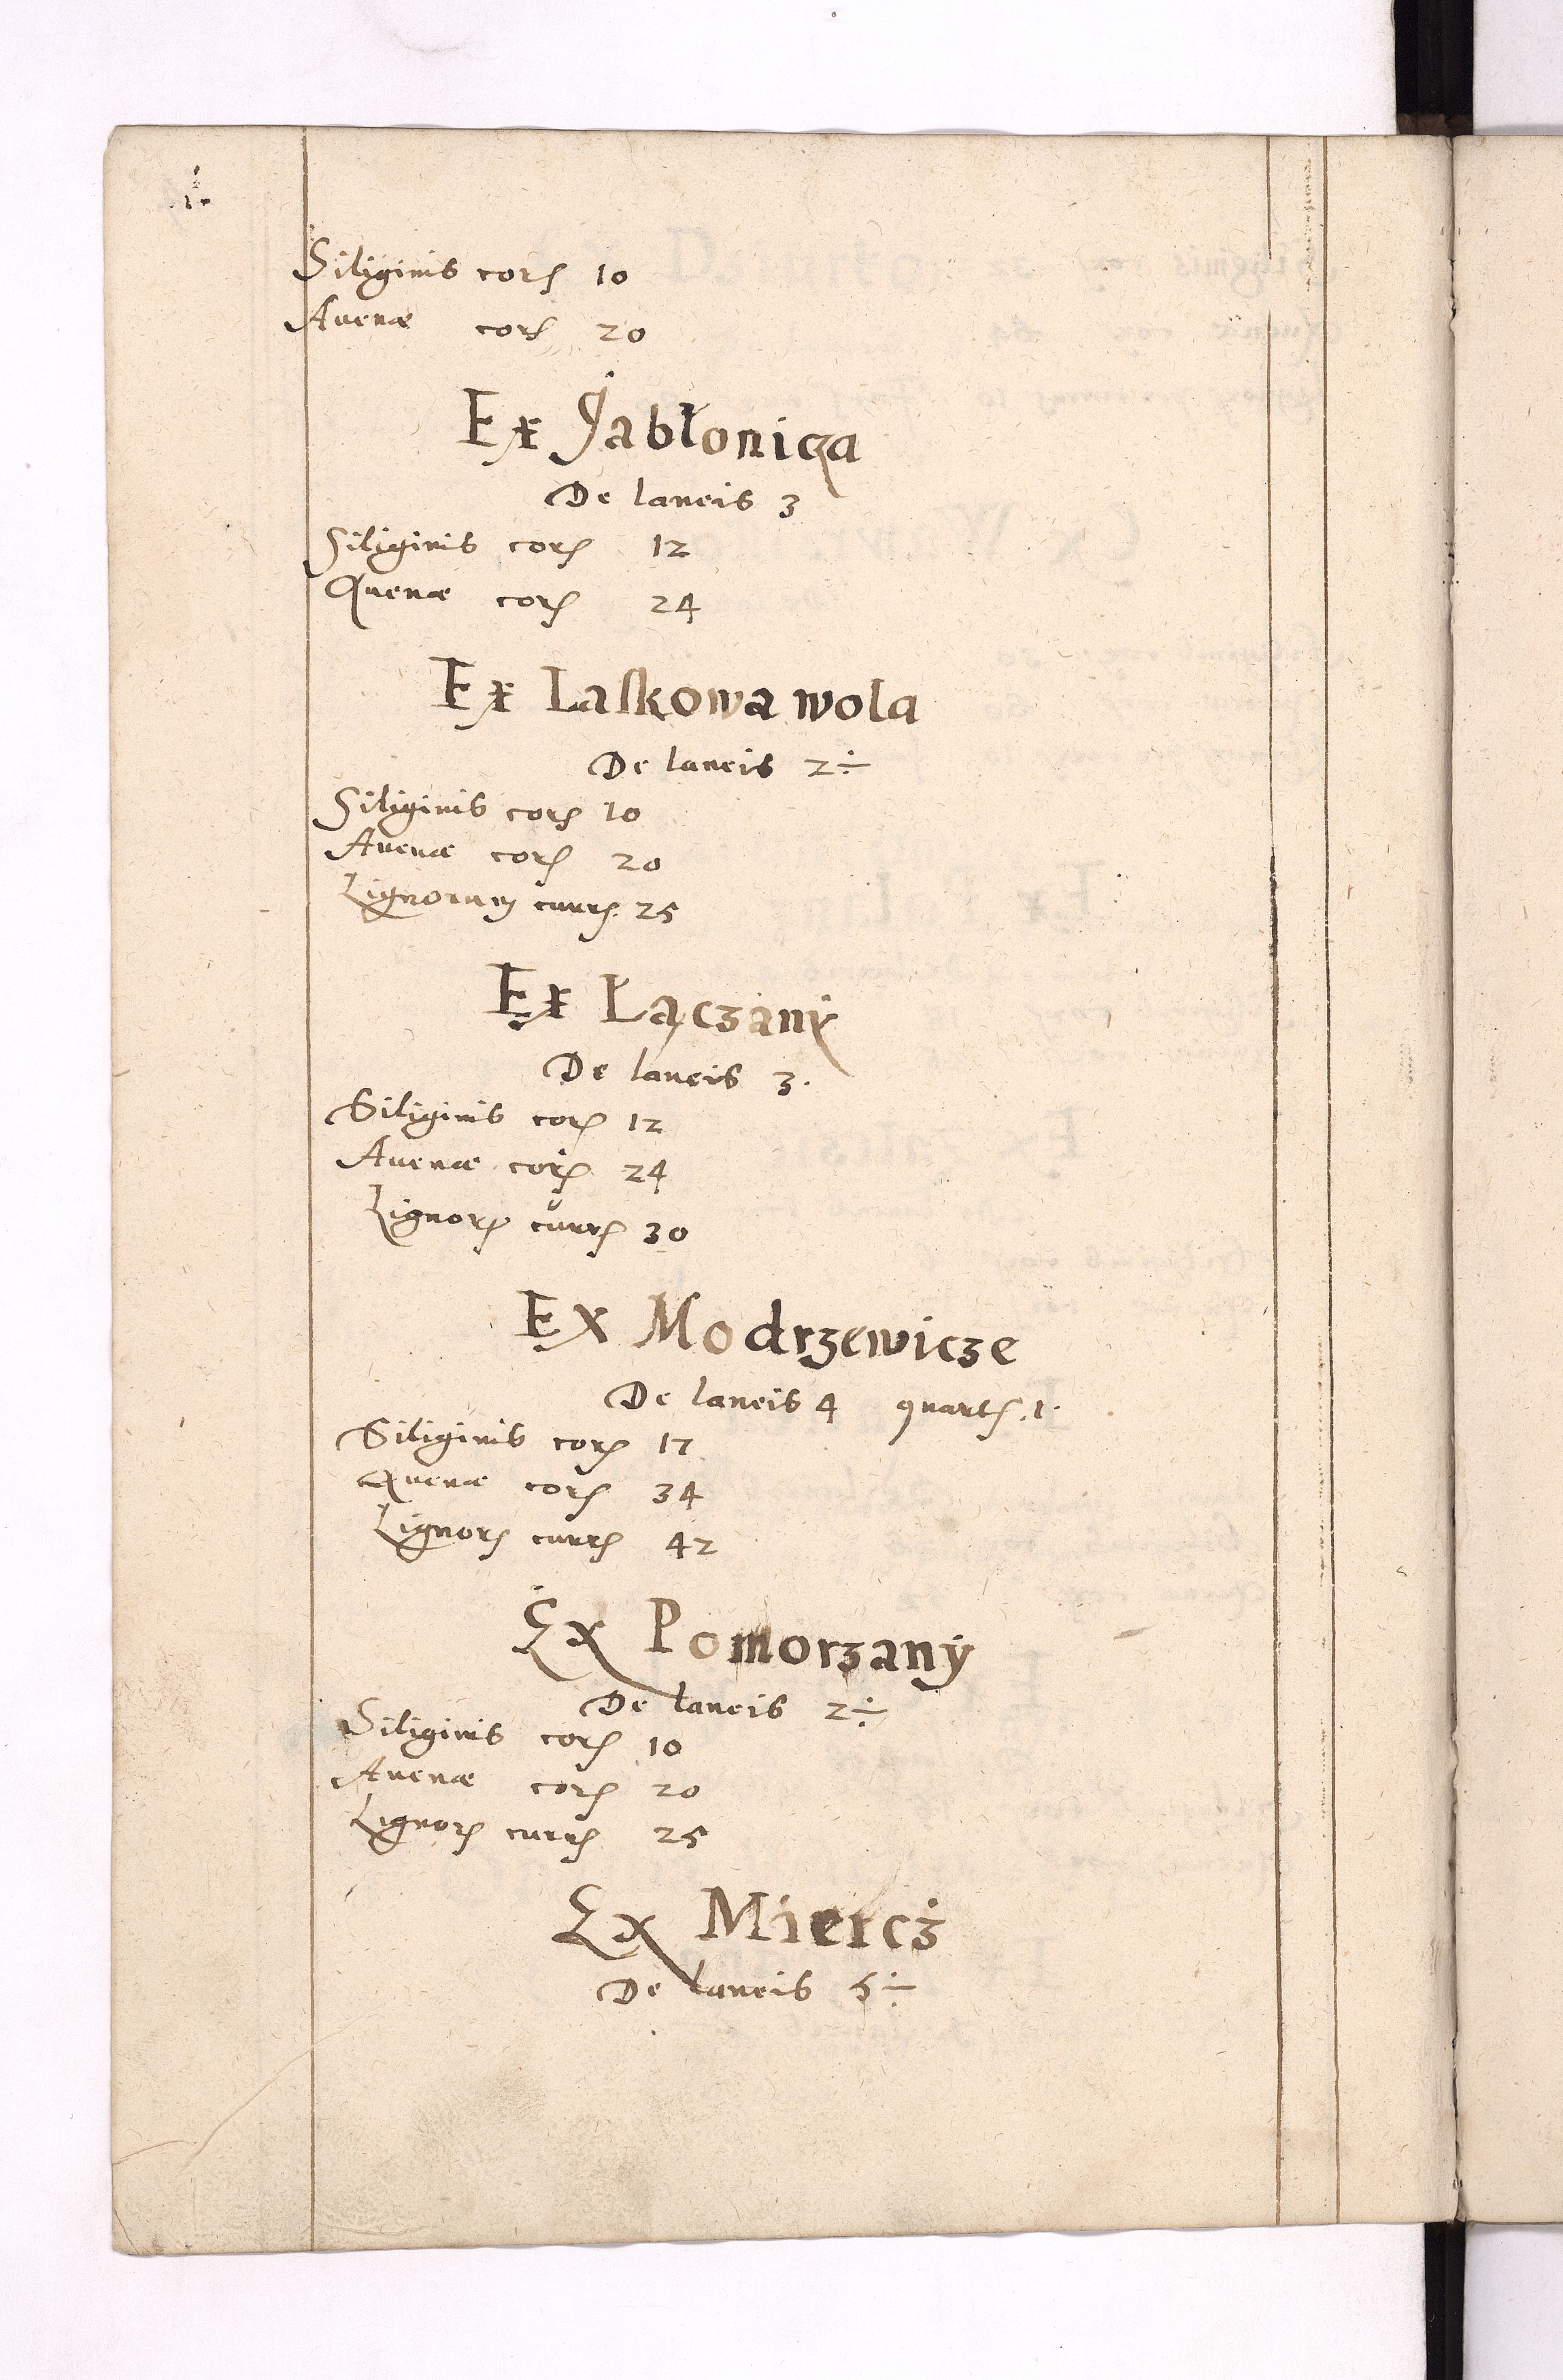 Siliginis corꝭ 10
Auenæ corꝭ 20
Ex Jabłonicza
De laneis 3
Siliginis corꝭ 12
Auenæ corꝭ 24
Ex Laſkowa wola
De laneis 2÷
Siliginis corꝭ 10
Auenæ corꝭ 20
Lignorum currꝭ 25
Ex Łączany
De laneis 3.
Siliginis corꝭ 12
Auenæ corꝭ 24
Lignorꝭ currꝭ 30
Ex Modrzewicze
De laneis 4 quartꝭ .1.
Siliginis corꝭ 17
Auenæ corꝭ 34
Lignorꝭ currꝭ 42
Ex Pomorzanÿ
De laneis 2÷
Siliginis corꝭ 10
Auenæ corꝭ 20
Lignorꝭ currꝭ 25
Ex Miercż
De laneis 5÷